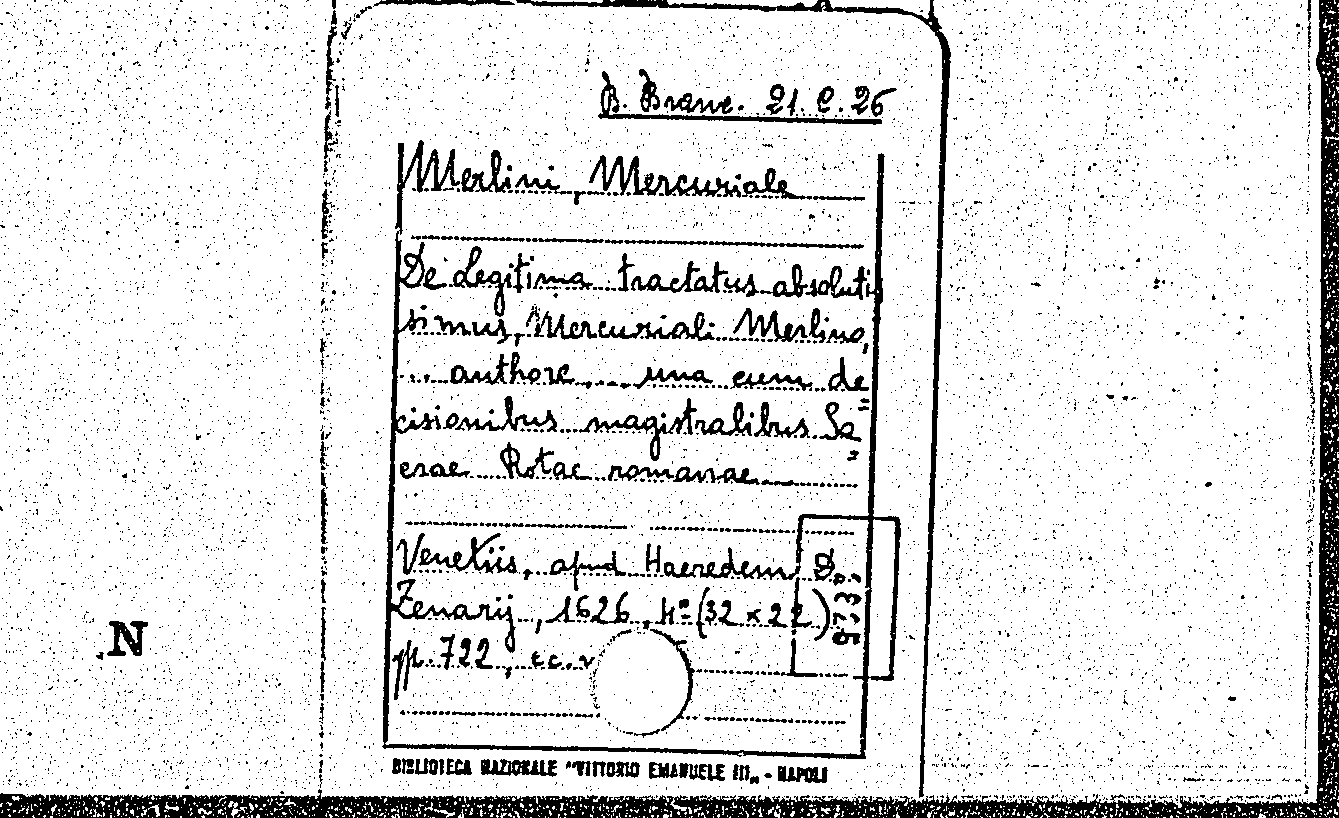 B. Branc. 21. C. 26
Merlini, Mercuriale
De Legitima tractatus absolutis
simus, Mercuriali Merlino,
... authore ... una cum de=
cisionibus magistralibus Sa=
crae Rotae romanae
Venetiis, apud Haeredem D.
Zenarij, 1626, 4º (32 x 22)
pp. 722, ec. v
N
BIBLIOTECA NAZIONALE "VITTORIO EMANUELE III„ - NAPOLI